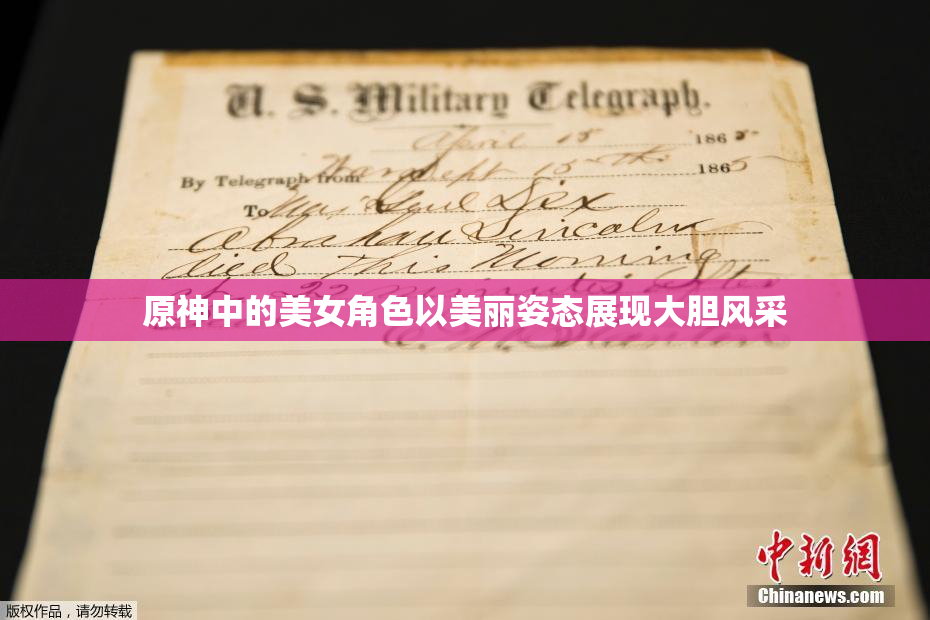 U. S. Military Telegraph.
April 15 1865
By Telegraph from War Dept 15th 1865
To Maj Genl Dix
Abraham Lincoln
died This Morning
22 minutes after
原神中的美女角色以美丽姿态展现大胆风采
E. M. Stanton
中新网
Chinanews.com
版权作品，请勿转载